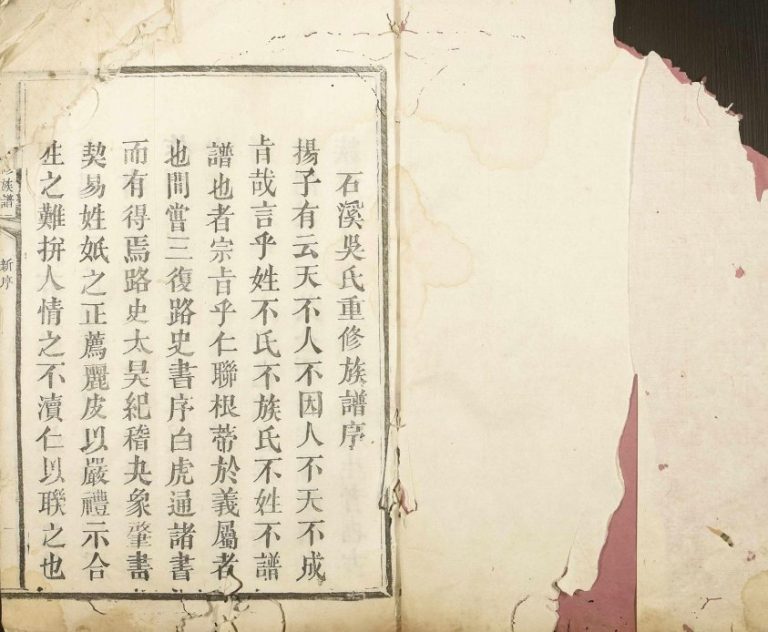 石溪吳氏重修族譜序
揚子有云天不人不因人不天不成
旨哉言乎姓不氏不族氏不姓不譜
譜也者宗旨乎仁聯根蒂於義屬者
也間嘗三復路史書序白虎通諸書
而有得焉路史太昊紀稽夬象肇書
契易姓妷之正薦麗皮以嚴禮示合
生之難拚人情之不瀆仁以聯之也
族譜
新序